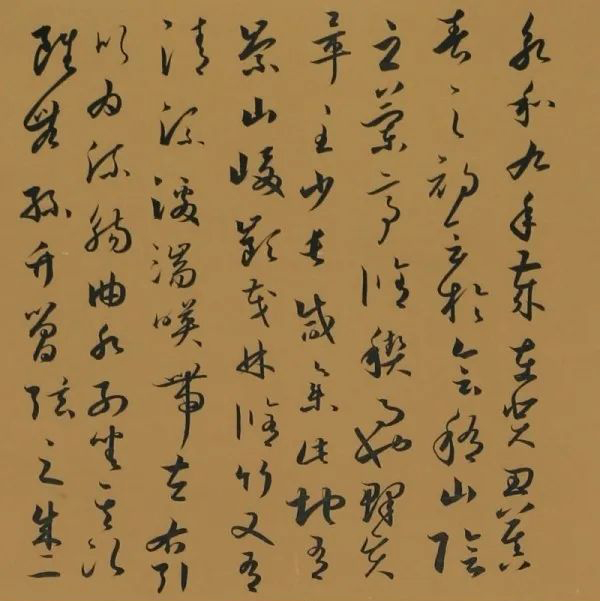 永和九年歲在癸丑暮
春之初會於會稽山陰
之蘭亭脩稧事也群賢
畢至少長咸集此地有
崇山峻嶺茂林脩竹又有
清流激湍暎帶左右引
以為流觴曲水列坐其次
雖無絲竹管弦之盛一